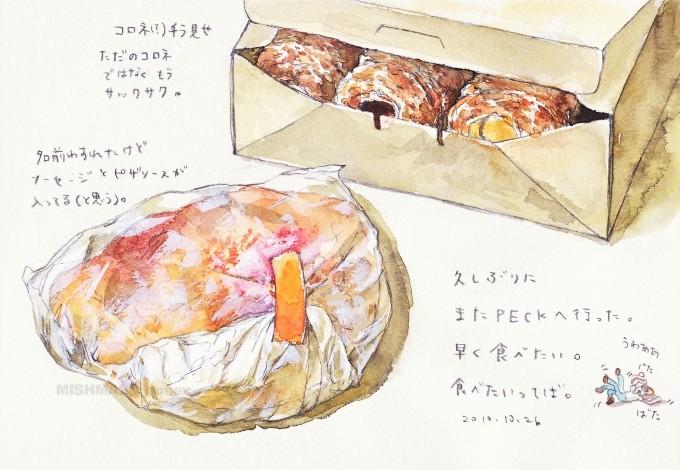 コロネ(?)チラ見せ
ただのコロネ
ではなく もう
サックサク。
名前わすれたけど
ソーセージとピザソースが
入ってる(と思う)。
久しぶりに
またPECKへ行った。
早く食べたい。
食べたいってば。
2010.10.26
うわああ
じた
ばた